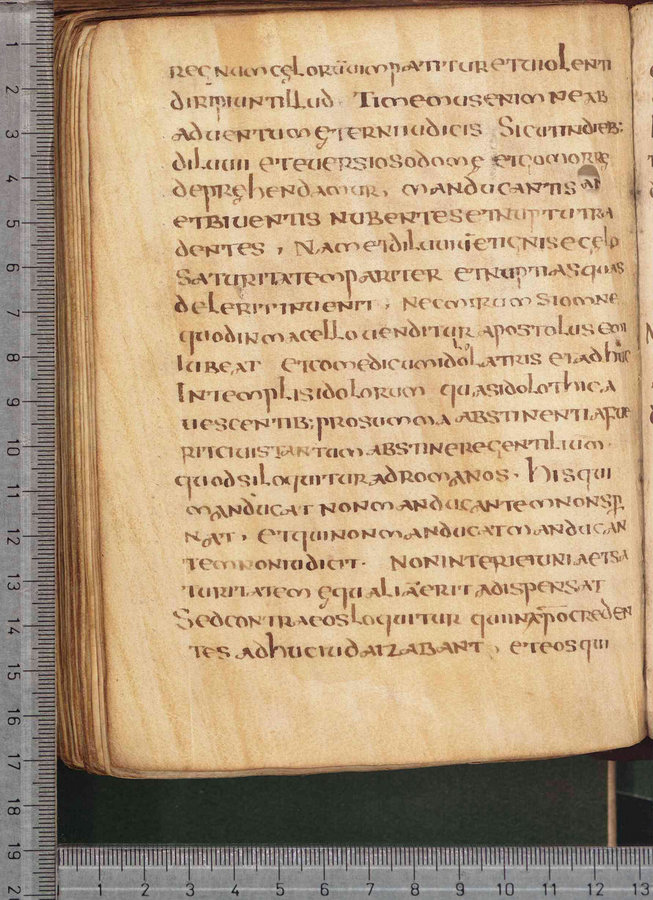 regnum cęlorū uim patitur et uiolenti
diripiunt illud Timemus enim ne ab
aduentum ęterni iudicis Sicut in dieb:
diluuii et euersio sodomę et gomorrę
depręhendamur, manducantis
et biuentis nubentes et nuptu tra
dentes, Nam et diluuiū et ignis e cęlo
saturitatem pariter et nuptias quas
deleret inuenit, nec mirum si omne
quod in macello uenditur apostolus emi
iubeat et comedi cum idolatris et adhuc
In templis idolorum quasi dolothica
uescentib: pro summa abstinentia fue
rit cius tantum abstinere gentilium.
quod si loquitur ad romanos. his qui
manducat non manducantem non sp̄
nat, et qui non manducat manducan
tem non iudicit. Non inter ieiunia et sa
turitatem ęqualiā erit a dispensat
Sed contra eos loquitur qui in xp̄o creden
tes adhuc iudaizabant, et eos qui
1 2 3 4 5 6 7 8 9 10 11 12 13 14 15 16 17 18 19
1 2 3 4 5 6 7 8 9 10 11 12 13